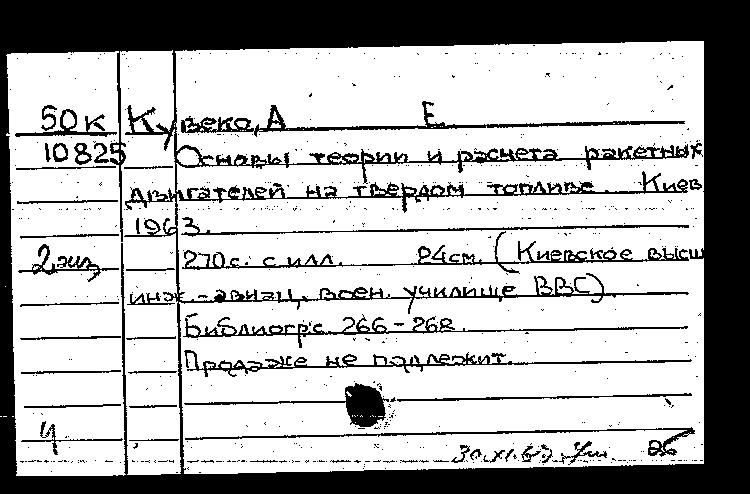 50к Кувеко, А Е.
10825 Основы теории и расчета ракетных
двигателей на твердом топливе. Киев
1963.
2 экз 270с. с илл. 24см. (Киевское высш
инж.-авиац. воен. училище ВВС).
Библиогр.с. 266-268.
Продаже не подлежит.
Ч
30.XI.63. 26